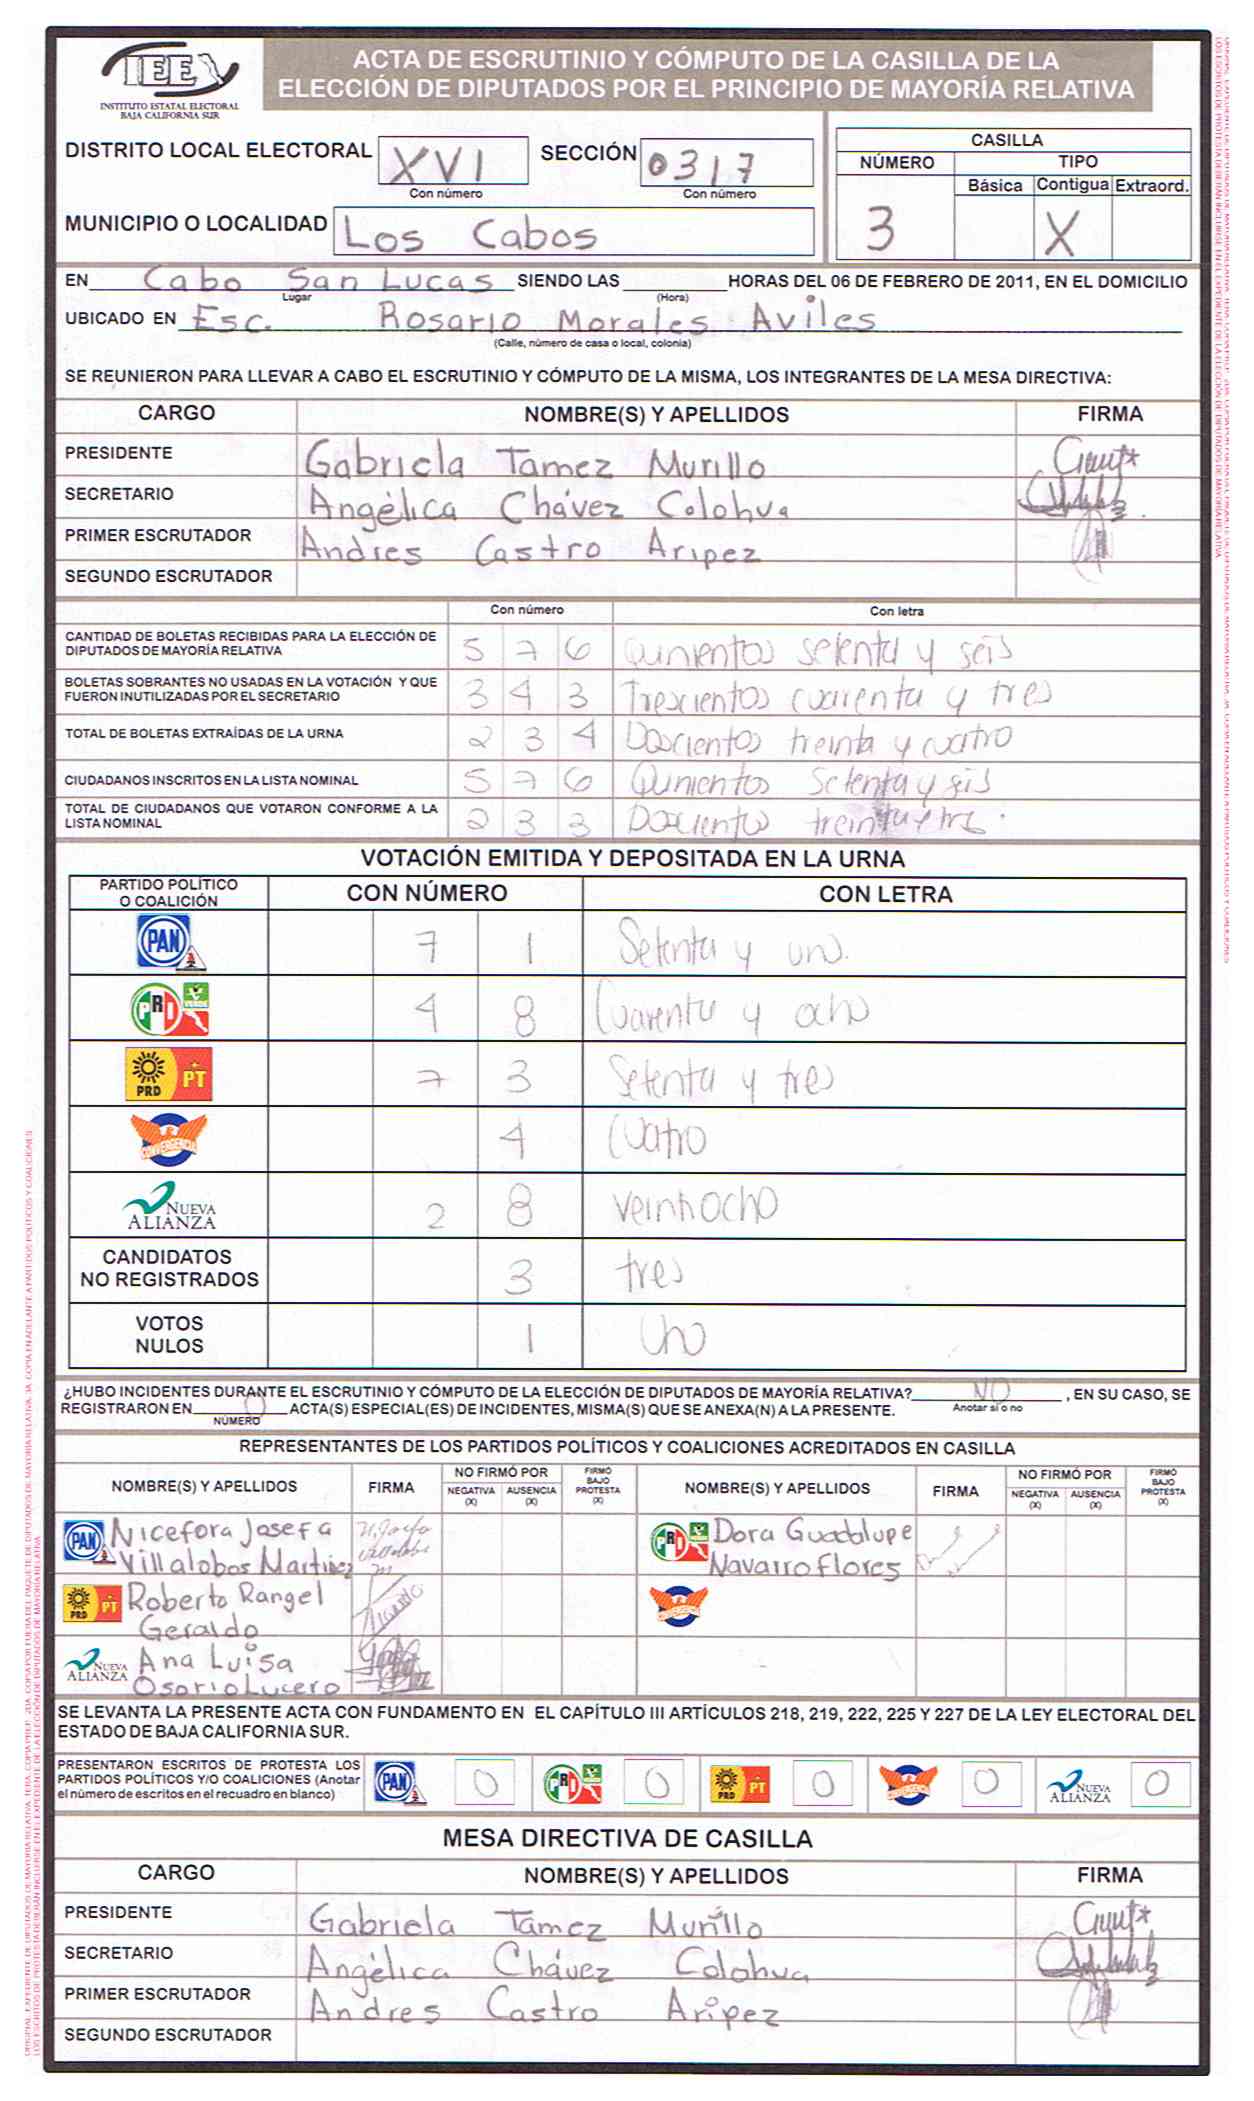 IEE
INSTITUTO ESTATAL ELECTORAL
BAJA CALIFORNIA SUR
ACTA DE ESCRUTINIO Y CÓMPUTO DE LA CASILLA DE LA
ELECCIÓN DE DIPUTADOS POR EL PRINCIPIO DE MAYORÍA RELATIVA
DISTRITO LOCAL ELECTORAL XVI SECCIÓN 0317
Con número Con número
MUNICIPIO O LOCALIDAD Los Cabos
CASILLA
NÚMERO TIPO
Básica Contigua Extraord.
3 X
EN Cabo San Lucas SIENDO LAS HORAS DEL 06 DE FEBRERO DE 2011, EN EL DOMICILIO
Lugar (Hora)
UBICADO EN Esc. Rosario Morales Aviles
(Calle, número de casa o local, colonia)
SE REUNIERON PARA LLEVAR A CABO EL ESCRUTINIO Y CÓMPUTO DE LA MISMA, LOS INTEGRANTES DE LA MESA DIRECTIVA:
CARGO NOMBRE(S) Y APELLIDOS FIRMA
PRESIDENTE Gabriela Tamez Murillo
SECRETARIO Angélica Chávez Colohua
PRIMER ESCRUTADOR Andres Castro Aripez
SEGUNDO ESCRUTADOR
Con número Con letra
CANTIDAD DE BOLETAS RECIBIDAS PARA LA ELECCIÓN DE
DIPUTADOS DE MAYORÍA RELATIVA 5 7 6 Quinientos setenta y seis
BOLETAS SOBRANTES NO USADAS EN LA VOTACIÓN Y QUE
FUERON INUTILIZADAS POR EL SECRETARIO 3 4 3 Trescientos cuarenta y tres
TOTAL DE BOLETAS EXTRAÍDAS DE LA URNA 2 3 4 Doscientos treinta y cuatro
CIUDADANOS INSCRITOS EN LA LISTA NOMINAL 5 7 6 Quinientos Setenta y seis
TOTAL DE CIUDADANOS QUE VOTARON CONFORME A LA
LISTA NOMINAL 2 3 3
VOTACIÓN EMITIDA Y DEPOSITADA EN LA URNA
PARTIDO POLÍTICO
O COALICIÓN CON NÚMERO CON LETRA
PAN 7 1 Setenta y uno.
PRD VERDE 4 8 Cuarenta y ocho
PRD PT 7 3 Setenta y tres
CONVERGENCIA 4 Cuatro
NUEVA
ALIANZA 2 8 veintiocho
CANDIDATOS
NO REGISTRADOS 3 tres
VOTOS
NULOS 1 Uno
¿HUBO INCIDENTES DURANTE EL ESCRUTINIO Y CÓMPUTO DE LA ELECCIÓN DE DIPUTADOS DE MAYORÍA RELATIVA? NO , EN SU CASO, SE
Anotar sí o no
REGISTRARON EN 0 ACTA(S) ESPECIAL(ES) DE INCIDENTES, MISMA(S) QUE SE ANEXA(N) A LA PRESENTE.
NÚMERO
REPRESENTANTES DE LOS PARTIDOS POLÍTICOS Y COALICIONES ACREDITADOS EN CASILLA
NOMBRE(S) Y APELLIDOS FIRMA NO FIRMÓ POR NEGATIVA (X) AUSENCIA (X) FIRMÓ BAJO PROTESTA (X)
NOMBRE(S) Y APELLIDOS FIRMA NO FIRMÓ POR NEGATIVA (X) AUSENCIA (X) FIRMÓ BAJO PROTESTA (X)
PAN Nicefora Josefa
Villalobos Martinez
PRD Dora Guadalupe
Navarro Flores
PRD PT Roberto Rangel
Geraldo
NUEVA ALIANZA Ana Luisa
Osorio Lucero
SE LEVANTA LA PRESENTE ACTA CON FUNDAMENTO EN EL CAPÍTULO III ARTÍCULOS 218, 219, 222, 225 Y 227 DE LA LEY ELECTORAL DEL
ESTADO DE BAJA CALIFORNIA SUR.
PRESENTARON ESCRITOS DE PROTESTA LOS
PARTIDOS POLÍTICOS Y/O COALICIONES (Anotar
el número de escritos en el recuadro en blanco)
PAN 0 PRD 0 PRD PT 0 0 NUEVA ALIANZA 0
MESA DIRECTIVA DE CASILLA
CARGO NOMBRE(S) Y APELLIDOS FIRMA
PRESIDENTE Gabriela Tamez Murillo
SECRETARIO Angélica Chávez Colohua
PRIMER ESCRUTADOR Andres Castro Aripez
SEGUNDO ESCRUTADOR